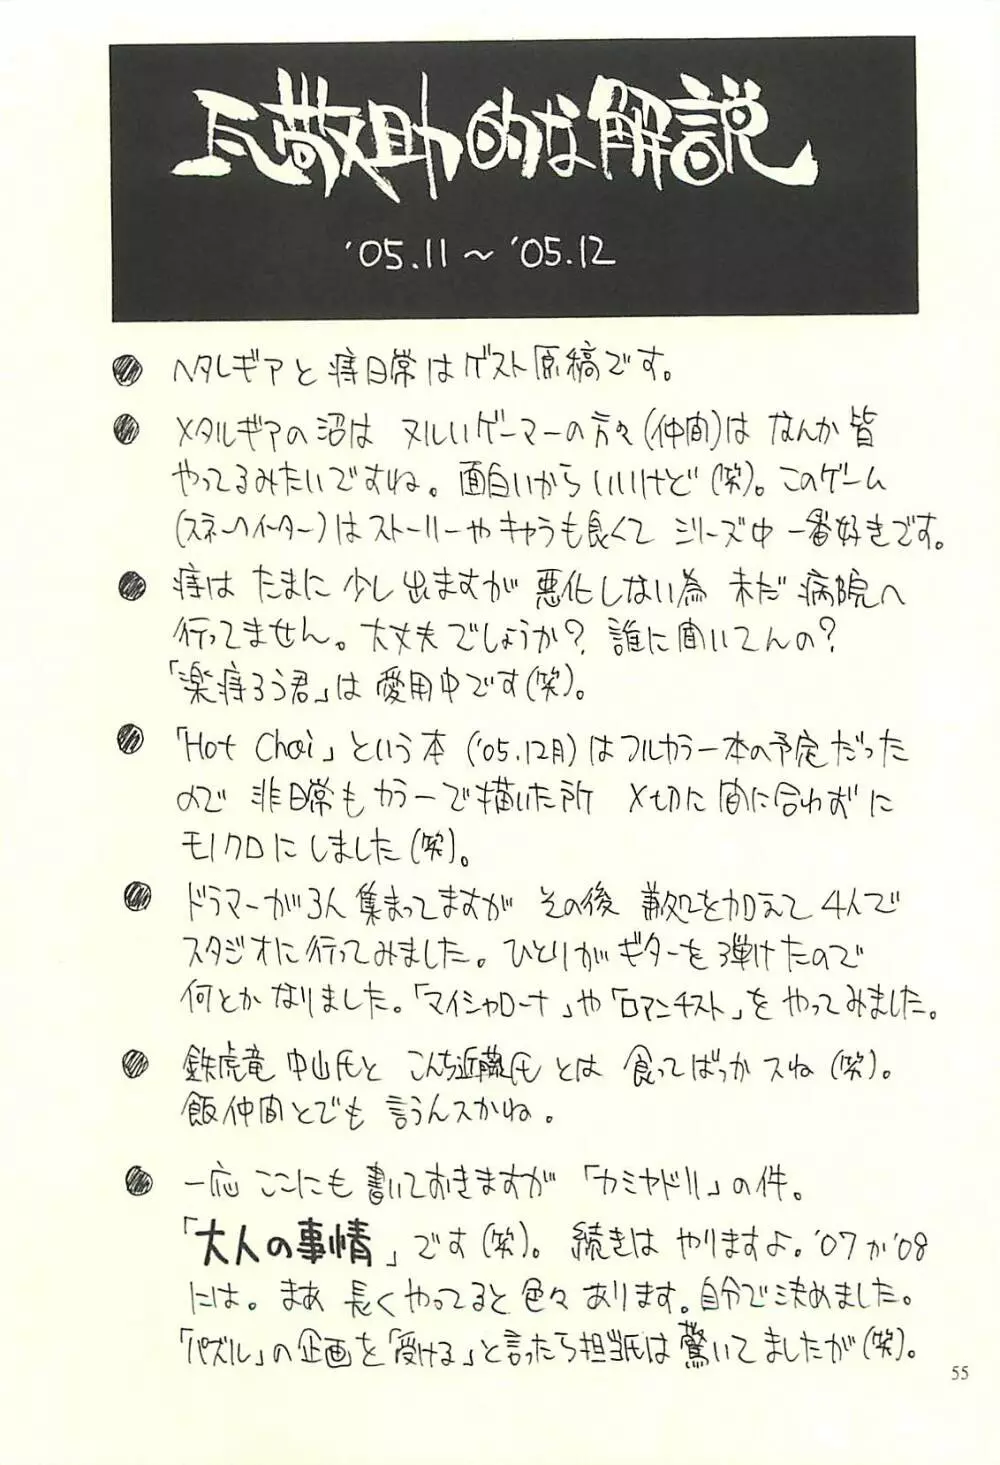 瓦敬助的な解説
'05.11〜'05.12
● ヘタレギアと痔日常はゲスト原稿です。
● メタルギアの沼は ヌルいゲーマーの方々(仲間)は なんか皆
やってるみたいですね。面白いからいいけど(笑)。このゲーム
(スネークイーター)はストーリーやキャラも良くて シリーズ中 一番好きです。
● 痔は たまに 少し出ますが 悪化しない為 未だ 病院へ
行ってません。大丈夫でしょうか？誰に聞いてんの？
「楽痔ろう君」は 愛用中です(笑)。
● 「Hot Choi」という本('05.12月)はフルカラー本の予定だった
ので 非日常もカラーで描いた所 〆切に間に合わずに
モノクロにしました(笑)。
● ドラマーが3人 集まってますが その後 兼処を加えて 4人で
スタジオに行ってみました。ひとりがギターを弾けたので
何とかなりました。「マイシャローナ」や「ロマンチスト」を やってみました。
● 鉄虎竜 中山氏と こんち近藤氏 とは 食ってばっかスね(笑)。
飯仲間とでも 言うんスかね。
● 一応 ここにも書いておきますが 「カミヤドリ」の件。
「大人の事情」です(笑)。続きは やりますよ。'07か'08
には。まあ 長くやってると色々 あります。自分で決めました。
「パズル」の企画を「受ける」と言ったら担当氏は驚いてましたが(笑)。
55